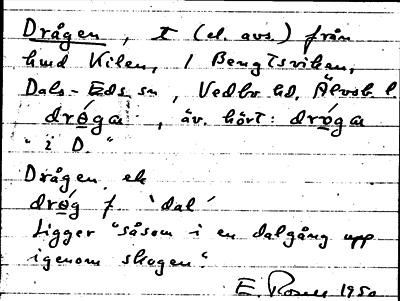 Drågen, I (el. avs.) från
hmd Kilen, / Bengtsviken,
Dals-Eds sn, Vedbo hd, Älvsb. l.
drǿga, äv. hört: drǿga
"i D."
Drågen ek
drǿg f 'dal'
Ligger "såsom i en dalgång upp
igenom skogen".
E 1950